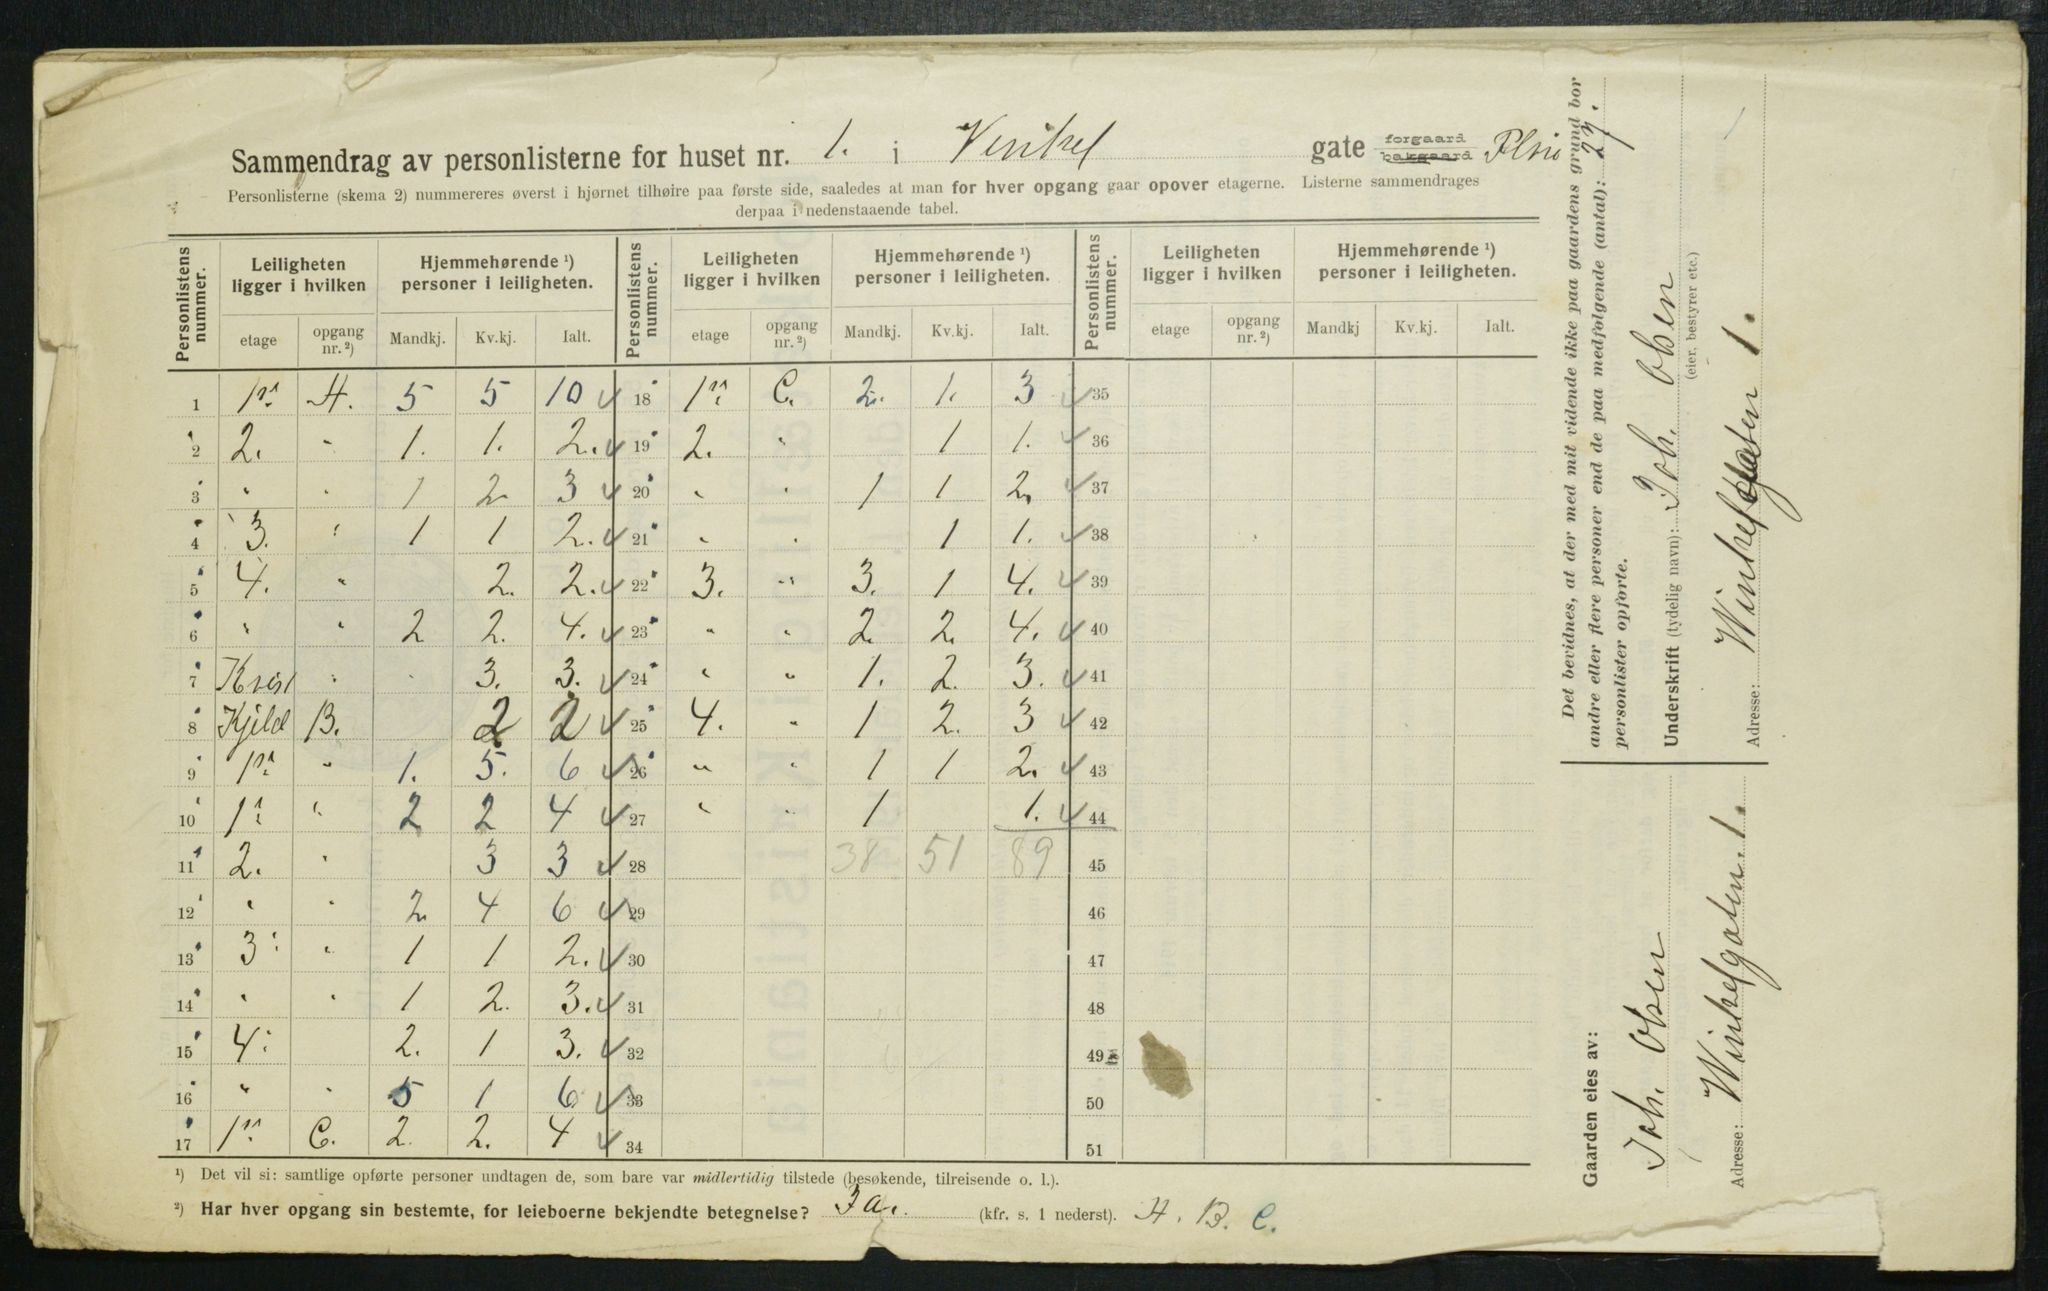 Sammendrag av personlisterne for huset nr. 1. i Vinkel gate forgaard bakgaard
Personlisterne (skema 2) nummereres øverst i hjørnet tilhøire paa første side, saaledes at man for hver opgang gaar opover etagerne. Listerne sammendrages
derpaa i nedenstaaende tabel.
Personlistens nummer. Leiligheten ligger i hvilken Hjemmehørende ¹) personer i leiligheten. Personlistens nummer. Leiligheten ligger i hvilken Hjemmehørende ¹) personer i leiligheten. Personlistens nummer. Leiligheten ligger i hvilken Hjemmehørende ¹) personer i leiligheten.
etage opgang nr. ²) Mandkj. Kv.kj. Ialt. etage opgang nr. ²) Mandkj. Kv.kj. Ialt. etage opgang nr. ²) Mandkj Kv.kj. Ialt.
1 1ste A. 5 5 10 18 1ste C. 2. 1. 3 35
2 2. " 1. 1. 2. 19 2. " 1 1. 36
3 " " 1 2. 3 20 " " 1 1 2. 37
4 3. " 1 1 2. 21 " " 1 1. 38
5 4. " 2. 2. 22 3. " 3. 1 4. 39
6 " " 2 2. 4. 23 " " 2. 2. 4. 40
7 Kvist " 3. 3. 24 " " 1. 2. 3. 41
8 Kjeld B. 2 2 25 4. " 1 2. 3 42
9 1ste " 1. 5. 6 26 " " 1 1 2. 43
10 1ste " 2 2 4 27 " " 1 1. 44
11 2. " 3 3 28 38 51 89 45
12 " " 2. 4 6 29 46
13 3. " 1 1 2. 30 47
14 " " 1 2. 3. 31 48
15 4. 2. 1 3. 32 49
16 " " 5 1 6 33 50
17 1ste C. 2. 2. 4 34 51
¹) Det vil si: samtlige opførte personer undtagen de, som bare var midlertidig tilstede (besøkende, tilreisende o. l.).
²) Har hver opgang sin bestemte, for leieboerne bekjendte betegnelse? Ja. (kfr. s. 1 nederst). A. B. C.
Det bevidnes, at der med mit vidende ikke paa gaardens grund bor
andre eller flere personer end de paa medfølgende (antal): 27.
personlister opførte.
Underskrift (tydelig navn): Joh. Olsen
(eier, bestyrer etc.)
Adresse: Winkelgaten 1.
Gaarden eies av:
Joh. Olsen
Adresse: Winkelgaten. 1.